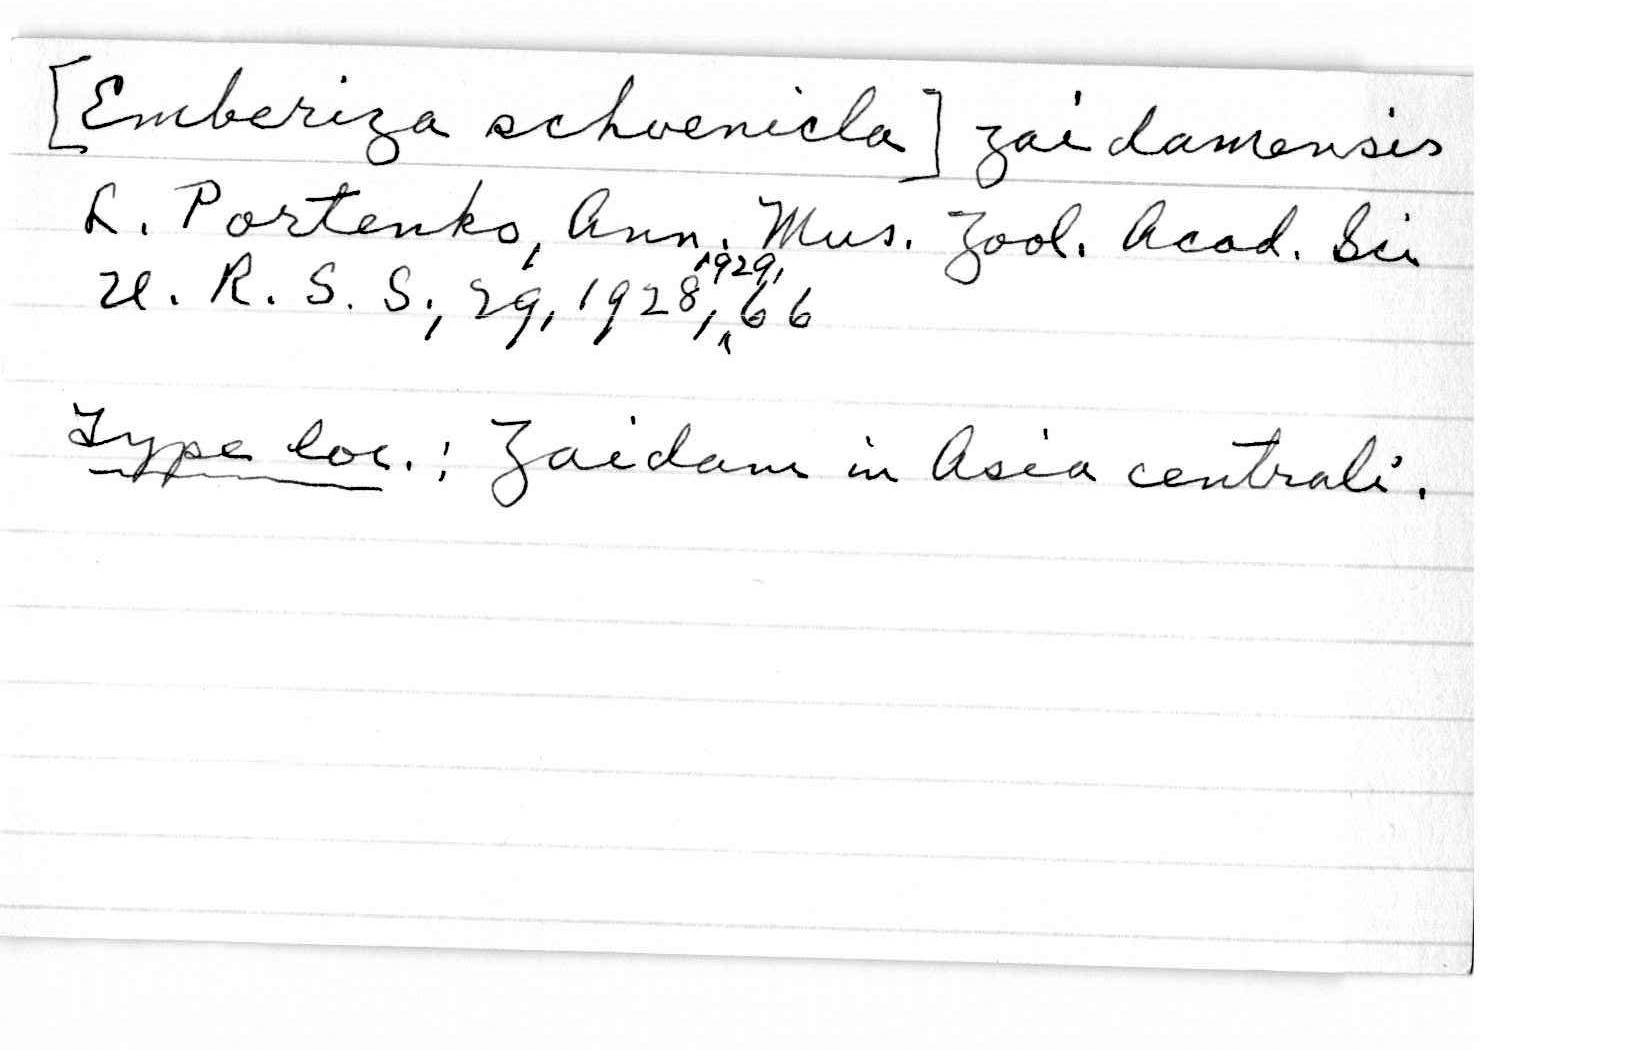 [Emberiza schoenicla] zaidamensis
L. Portenko, Ann. Mus. Zool. Acad. Sci
U. R. S. S., 29, 1928, 1929, 66
Type loc.: Zaidam in Asia centrali.